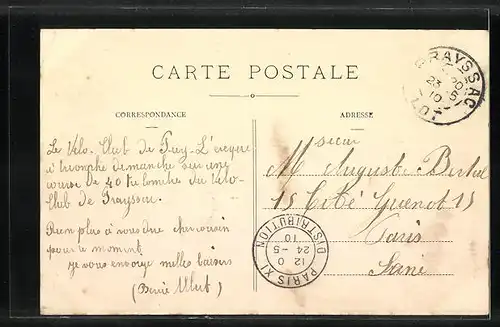 CARTE POSTALE
CORRESPONDANCE
Le Vélo-Club de Puy-L'évêque
a triomphé dimanche sur une
course de 40 kilomètres du Vélo-
Club de Prayssac.
Rien plus à vous dire cher cousin
pour le moment.
Je vous envoie milles baisers
ADRESSE
Monsieur
Auguste
15 Cité Guenot 15
Paris
PRAYSSAC
23 5
10
LOT
PARIS XI DISTRIBUTION
12 0
24 - 5
10